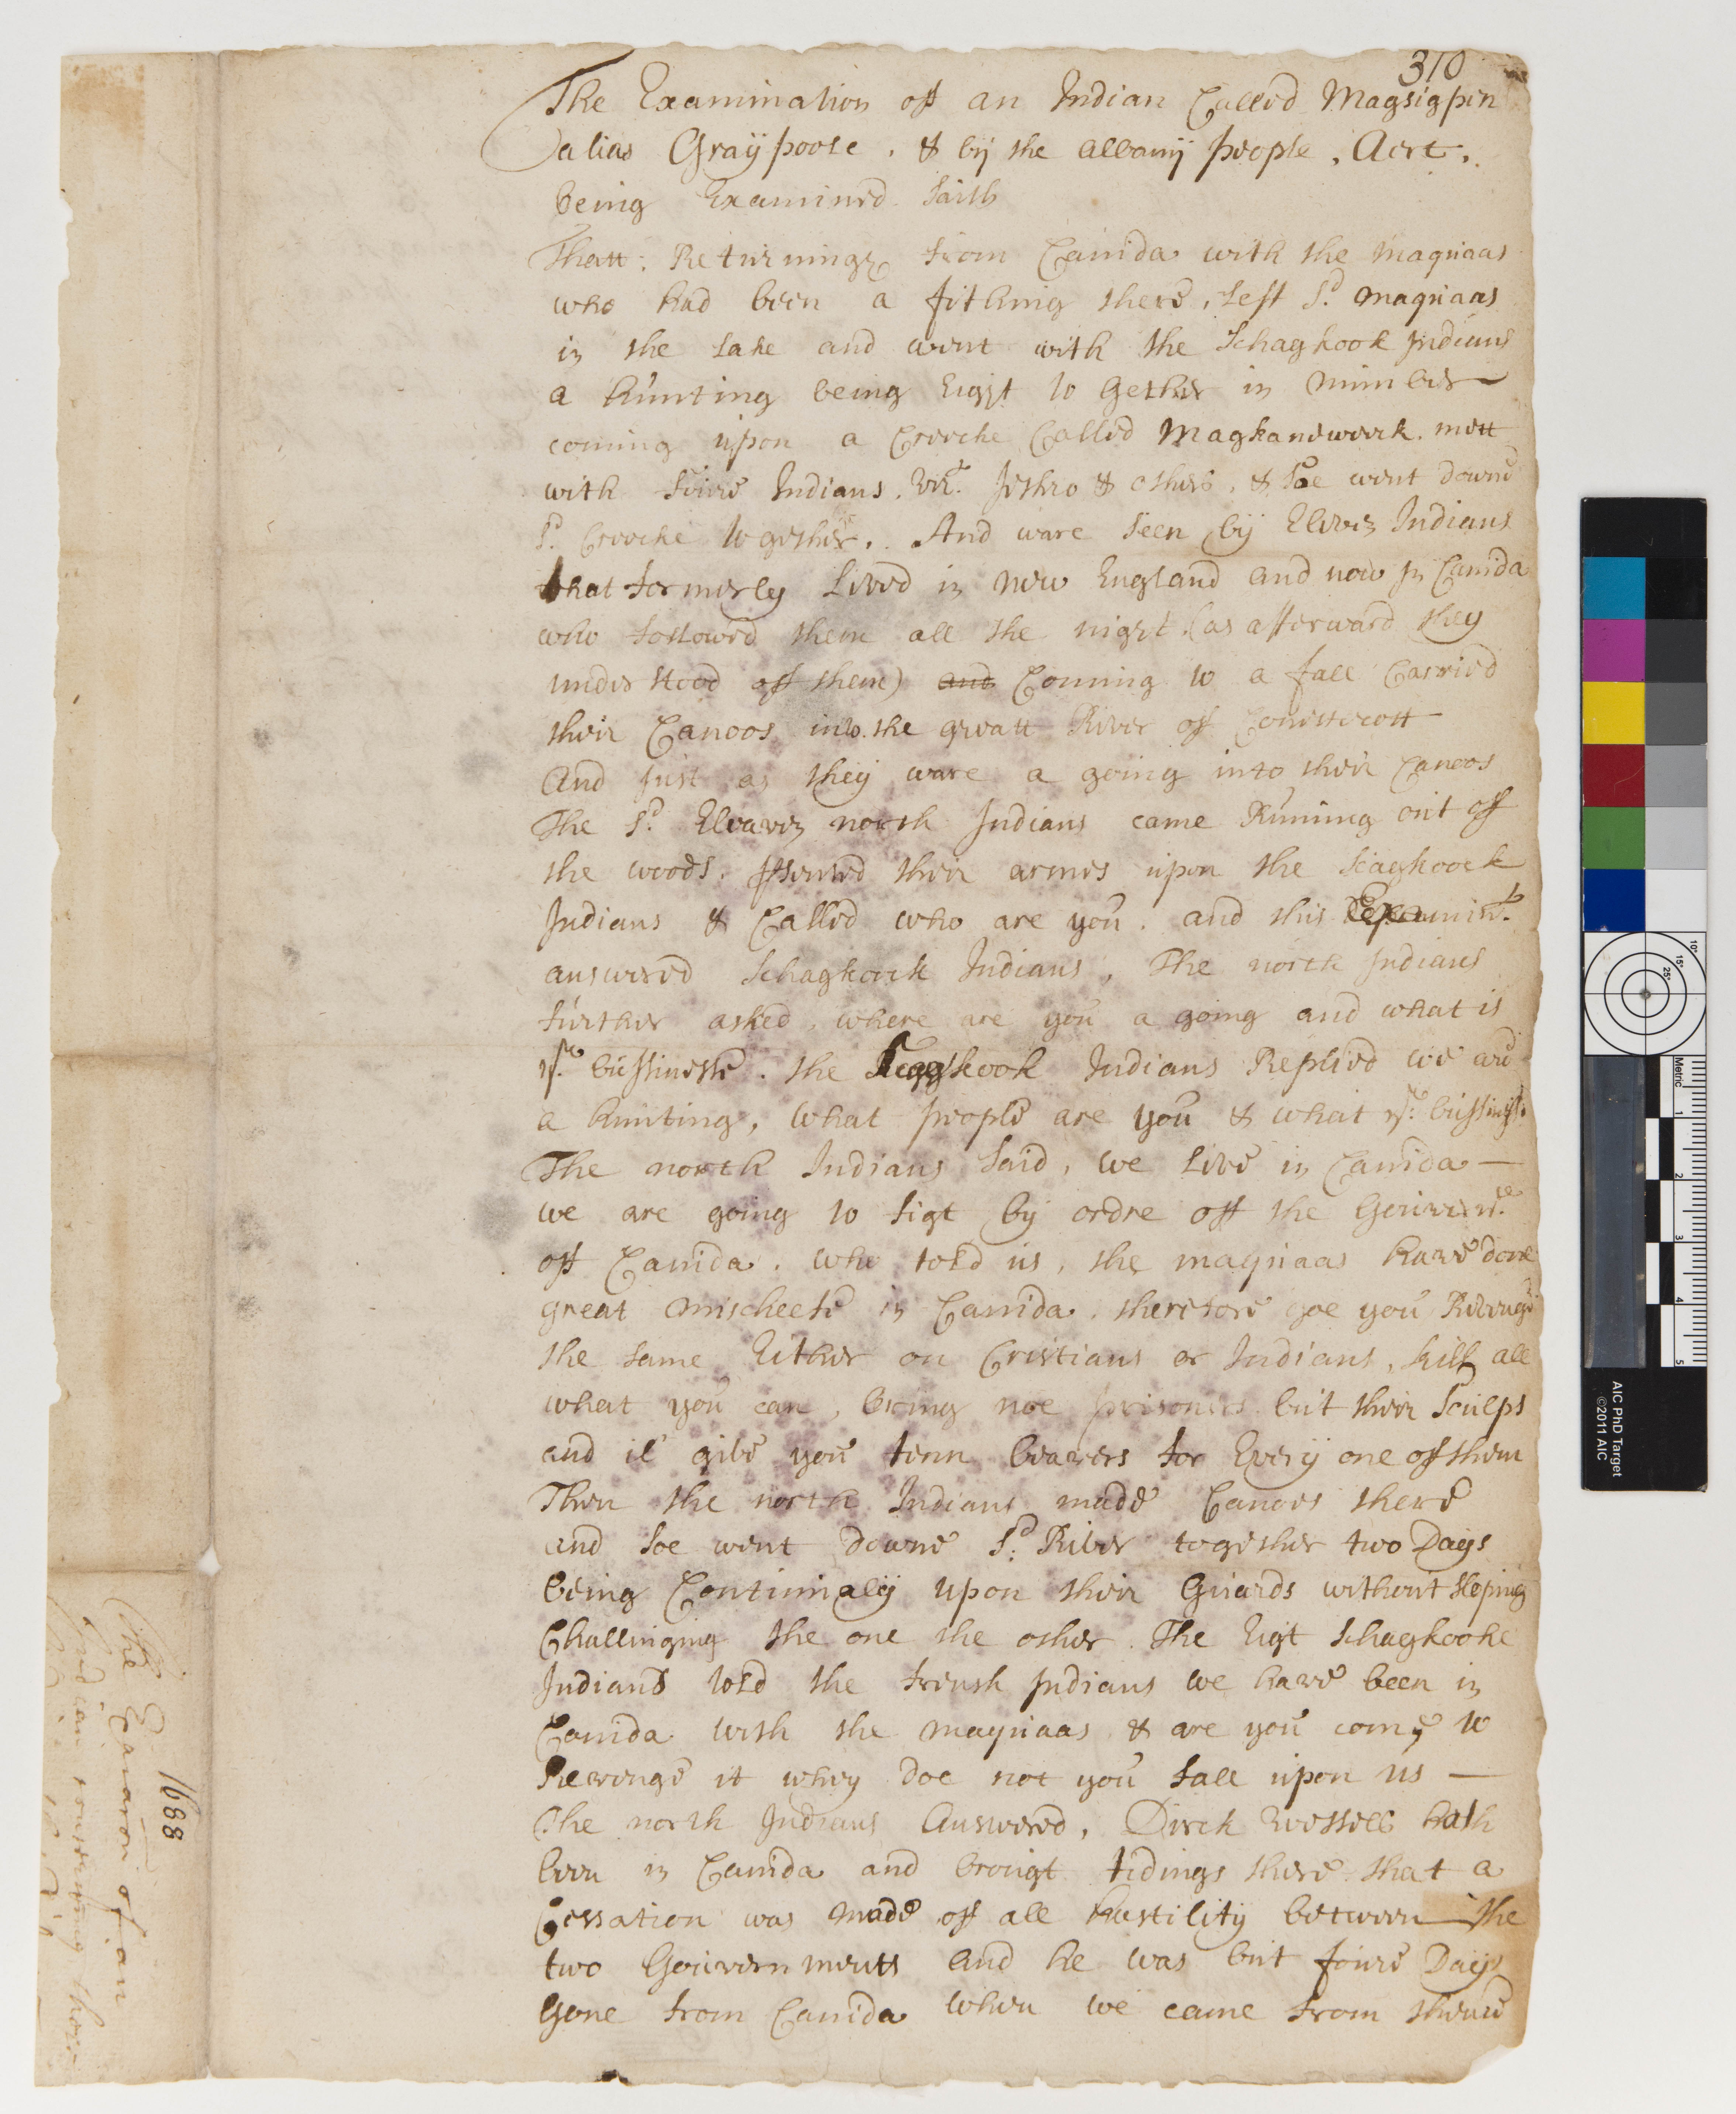 310
The Examination off an Indian Called Magsigpen
alias Graÿpoole, & bÿ the albanÿ people, Aert,
being Examined Saith
Thatt: Returninge from Canida with the maquaas
who had been a fithing there, left sd. maquaas
in the lake and went with the Schagkook Indians
a hunting being Eigt to Gether in number
coming upon a Creeke Called Magkaneweek. mett
with Indians, vizt. Jethro & others, & soe went downe
sd. Creeke together. And ware seen bÿ Eleven Indians
that formerly lived in new England and now in Canida
who followed them all the nigt (as afterward they
under stood off them) and Coming to a fall Carried
their Canoos into the greatt River off Conetticott
And just as theÿ ware a going into their Canoos
The sd. Eleaven north Indians came Running out off
the woods, their armes upon the Scagkook
Indians & Called who are you. and this Examint.
answered Schagkook Indians, The north Indians
further asked, where are you a going and what is
yr. bussinesse. the Scagkook Indians Replied we are
a hunting, what people are you & what yr. bussinesse
The north Indians said, we live in Canida
we are going to figt bÿ ordre off the Gouvernr.
off Canida. who told us, the maquaas have done
great mischeefe in Canida. therefore goe you Revenge
the same Either on Cristians or Indians, kill all
what you can, bring noe prisoners but their Sculps
and il give you tenn beavers for Everÿ one off them
Then the north Indians made Canoes there
and soe went downe sd. River together two Days
being Continualÿ upon their Guards without Sleping
Challinging the one the other. The Eigt Schagkooke
Indians told the frensh Indians we have been in
Canida with the maquaas & are you come to
Revenge it whey doe not you fall upon us
The north Indians Answered, Dirck Wessells hath
been in Canida and brougt tidings there that a
Cessation was made off all hustilitÿ between the
two Gouvernments and he was but foure Days
Gone from Canida when we came from thence
1688
The Examiron of an
Indian concerning there